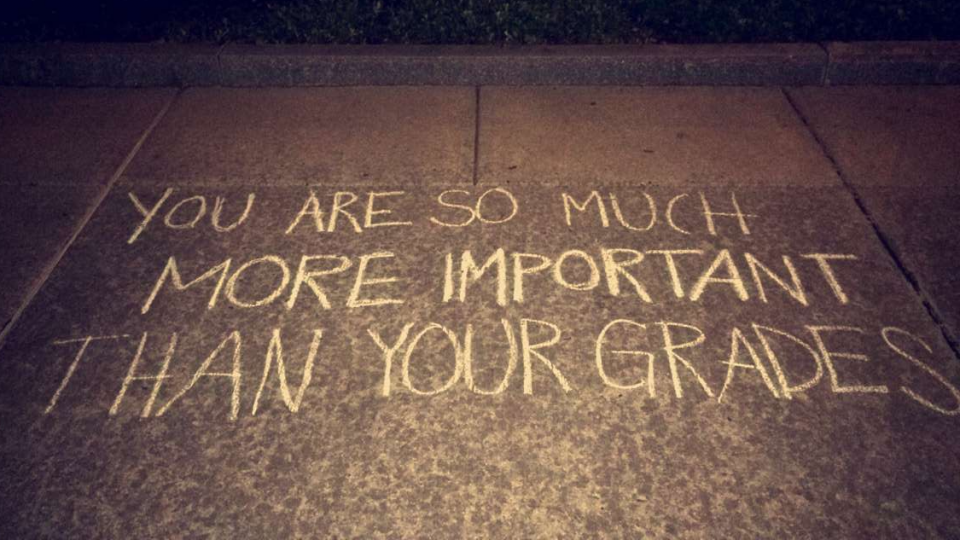 YOU ARE SO MUCH
MORE IMPORTANT
THAN YOUR GRADES